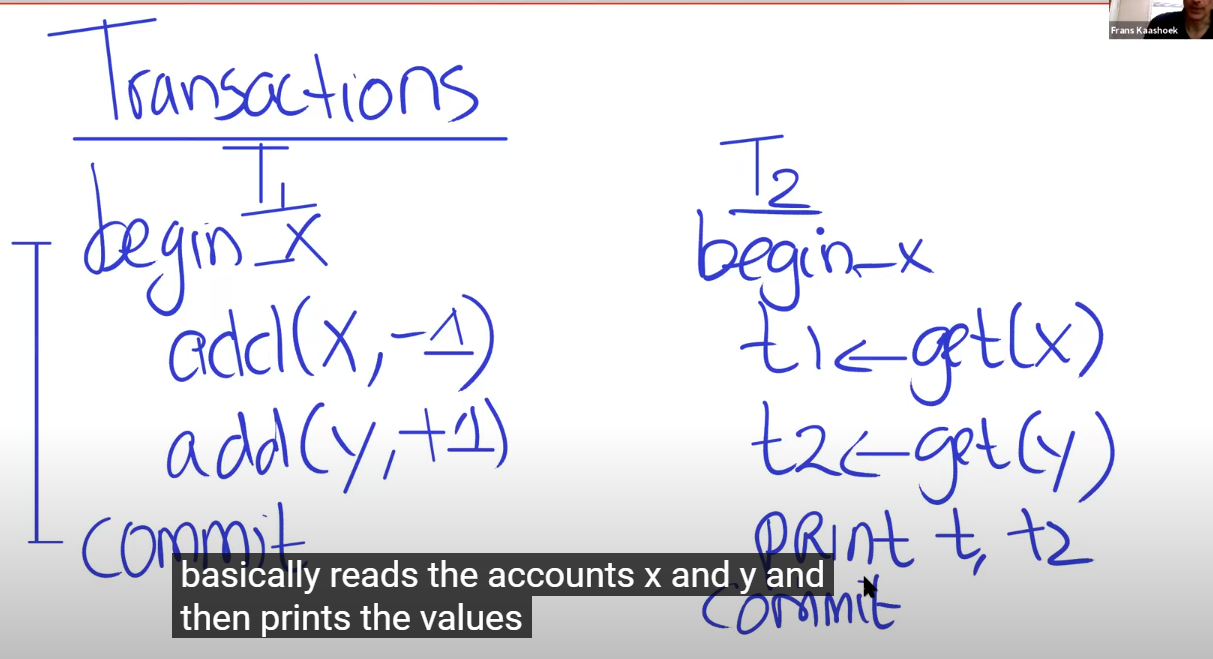 Frans Kaashoek
Transactions
T1
begin_x
add(x, -1)
add(y, +1)
commit
T2
begin_x
t1 ← get(x)
t2 ← get(y)
PRINT t, t2
commit
basically reads the accounts x and y and
then prints the values